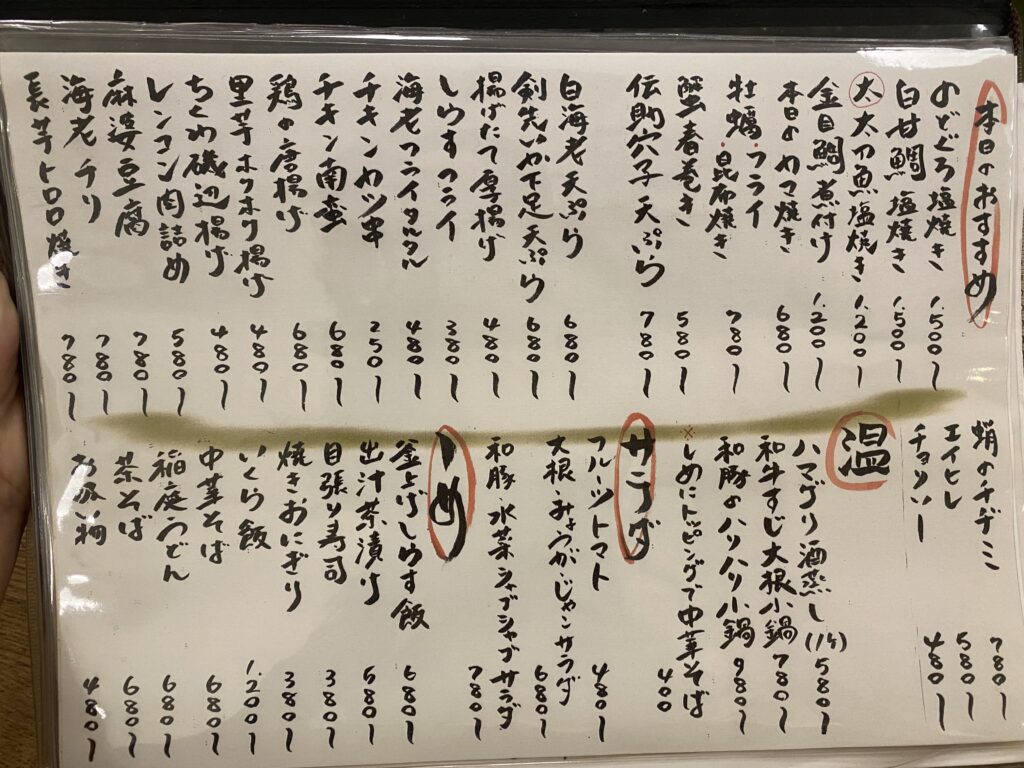 本日のおすすめ
のどぐろ塩焼き 1.500ー
白甘鯛 塩焼き 1.500ー
太 太刀魚塩焼き 1.200ー
金目鯛煮付け 1.200ー
本日のカマ焼き 680ー
牡蠣・フライ・昆布焼き 780ー
蟹春巻き 580ー
伝助穴子天ぷら 780ー
白海老天ぷら 680ー
剣先いか下足天ぷら 680ー
揚げたて厚揚げ 480ー
しらすフライ 380ー
海老フライタルタル 480ー
チキンカツ串 250ー
チキン南蛮 680ー
鶏の唐揚げ 680ー
里芋ホクホク揚げ 480ー
ちくわ磯辺揚げ 480ー
レンコン肉詰め 580ー
麻婆豆腐 780ー
海老チリ 780ー
長芋トロロ焼き 780ー
蛸のチヂミ 780ー
エイヒレ 580ー
チョリソー 480ー
温
ハマグリ酒蒸し(1ケ) 580ー
和牛すじ大根小鍋 780ー
和豚のハリハリ小鍋 980ー
※しめにトッピングで中華そば 400
サラダ
フルーツトマト 480ー
大根・みょうが・じゃこサラダ 680ー
和豚・水菜シャブシャブサラダ 780ー
〆め
釜上げしらす飯 680ー
出汁茶漬け 580ー
目張り寿司 380ー
焼きおにぎり 380ー
いくら飯 1.200ー
中華そば 680ー
稲庭うどん 680ー
茶そば 680ー
お吸い物 480ー